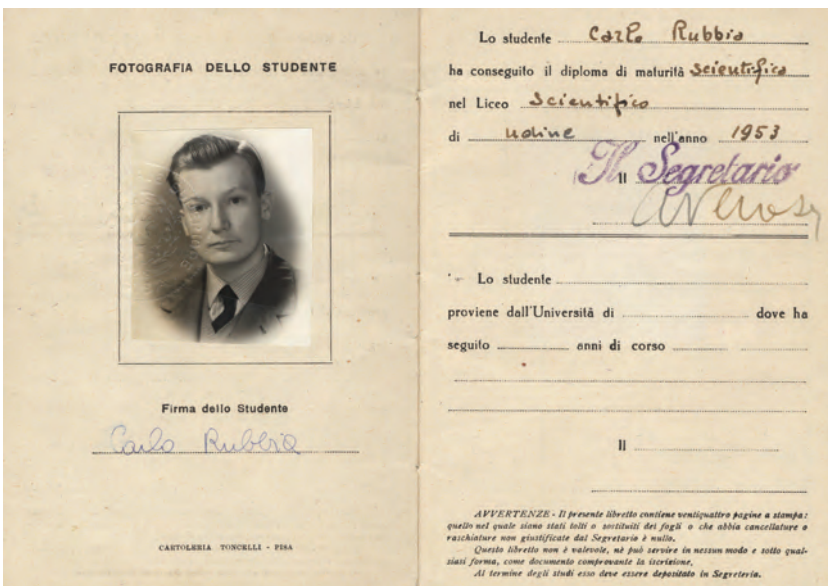 FOTOGRAFIA DELLO STUDENTE
Firma dello Studente
Carlo Rubbia
CARTOLERIA TONCELLI - PISA
Lo studente Carlo Rubbia
ha conseguito il diploma di maturità scientifica
nel Liceo Scientifico
di Udine nell'anno 1953
Il Segretario
Il
Lo studente
proviene dall'Università di dove ha
seguito anni di corso
Il
AVVERTENZE - Il presente libretto contiene ventiquattro pagine a stampa:
quello nel quale siano stati tolti o sostituiti dei fogli o che abbia cancellature o
raschiature non giustificate dal Segretario è nullo.
Questo libretto non è valevole, nè può servire in nessun modo e sotto qual-
siasi forma, come documento comprovante la iscrizione.
Al termine degli studi esso deve essere depositato in Segreteria.